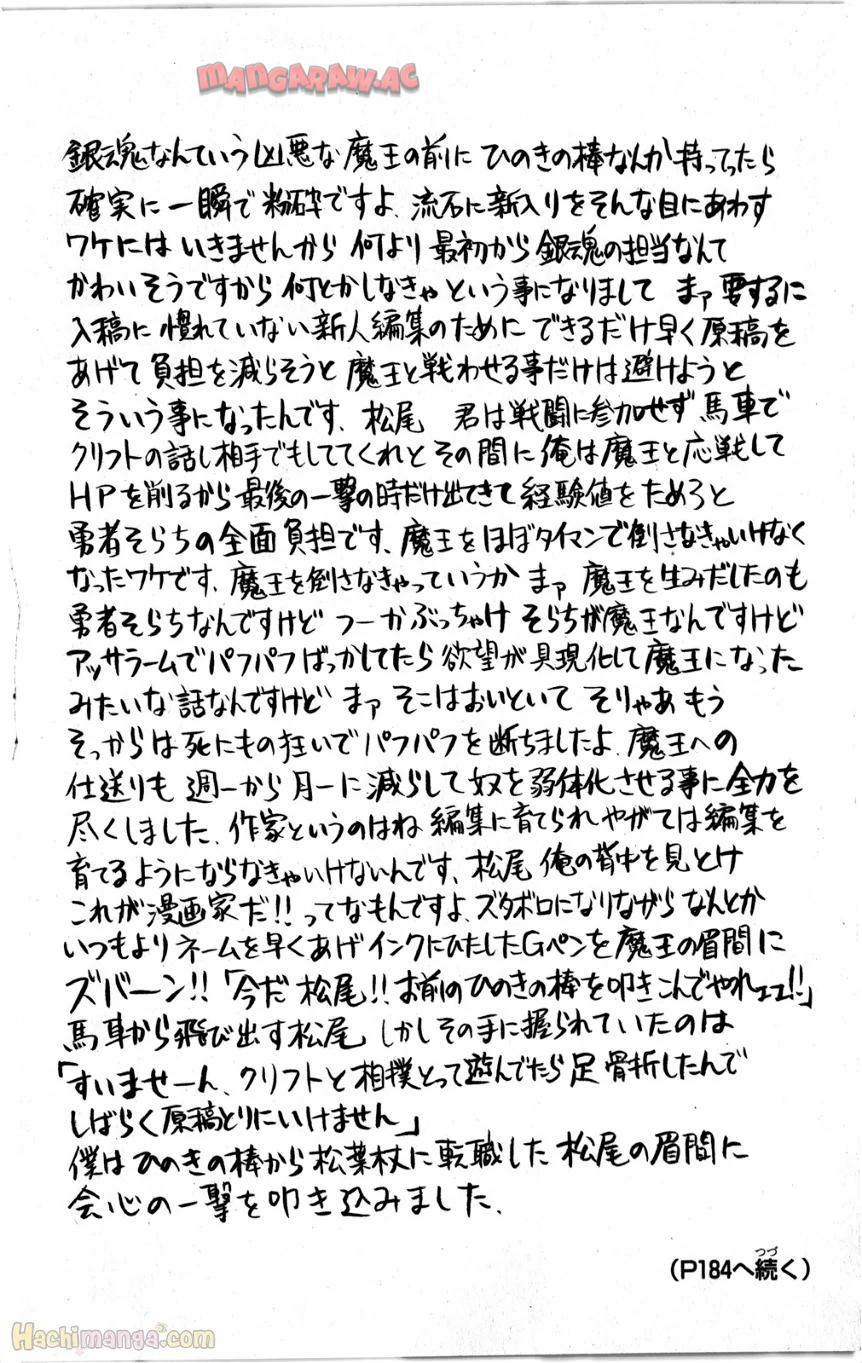 MANGARAW.AC
銀魂なんていう凶悪な魔王の前に ひのきの棒なんか持ってったら
確実に一瞬で粉砕ですよ、流石に新入りをそんな目にあわす
ワケにはいきませんから 何より最初から銀魂の担当なんて
かわいそうですから何とかしなきゃという事になりまして まァ要するに
入稿に慣れていない新人編集のために できるだけ早く原稿を
あげて負担を減らそうと 魔王と戦わせる事だけは避けようと
そういう事になったんです、松尾 君は戦闘に参加せず、馬車で
クリフトの話し相手でもしててくれと その間に俺は魔王と応戦して
HPを削るから最後の一撃の時だけ出てきて経験値をためろと
勇者そらちの全面負担です、魔王をほぼタイマンで倒さなきゃいけなく
なったワケです、魔王を倒さなきゃっていうか まァ 魔王を生みだしたのも
勇者そらちなんですけど つーかぶっちゃけ そらちが魔王なんですけど
アッサラームでパフパフばっかしてたら欲望が具現化して魔王になった
みたいな話なんですけど まァ そこはおいといて そりゃあもう
そっからは死にもの狂いでパフパフを断ちましたよ、魔王への
仕送りも 週一から月一に減らして奴を弱体化させる事に全力を
尽くしました、作家というのはね 編集に育てられやがては編集を
育てるようにならなきゃいけないんです、松尾 俺の背中を見とけ
これが漫画家だ!!ってなもんですよ、ズタボロになりながらなんとか
いつもよりネームを早くあげインクにひたしたGペンを魔王の眉間に
ズバーン!!「今だ 松尾!!お前のひのきの棒を叩きこんでやれェェ!!」
馬車から飛び出す松尾、しかしその手に握られていたのは
「すいませーん、クリフトと相撲とって遊んでたら足骨折したんで
しばらく原稿とりにいけません」
僕はひのきの棒から松葉杖に転職した松尾の眉間に
会心の一撃を叩き込みました、
(P184へ続(つづ)く)
Hachimanga.com